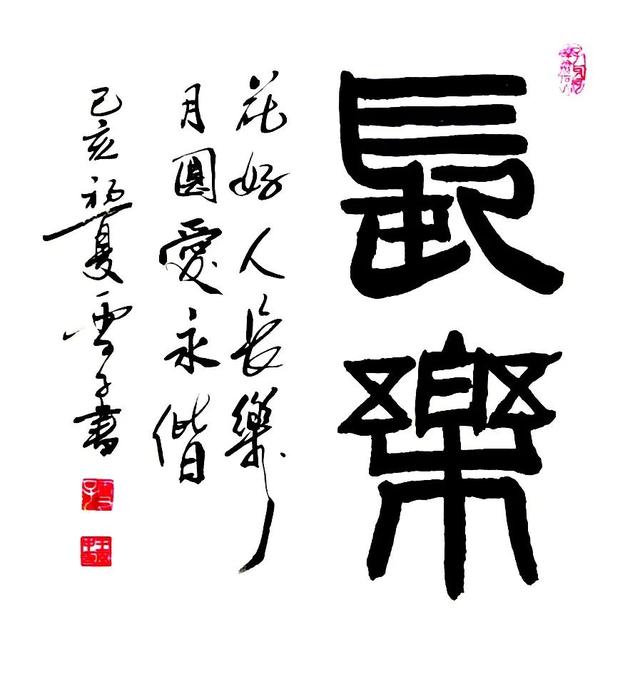 長樂
花好人長樂
月圓愛永偕
己亥初夏雪子書